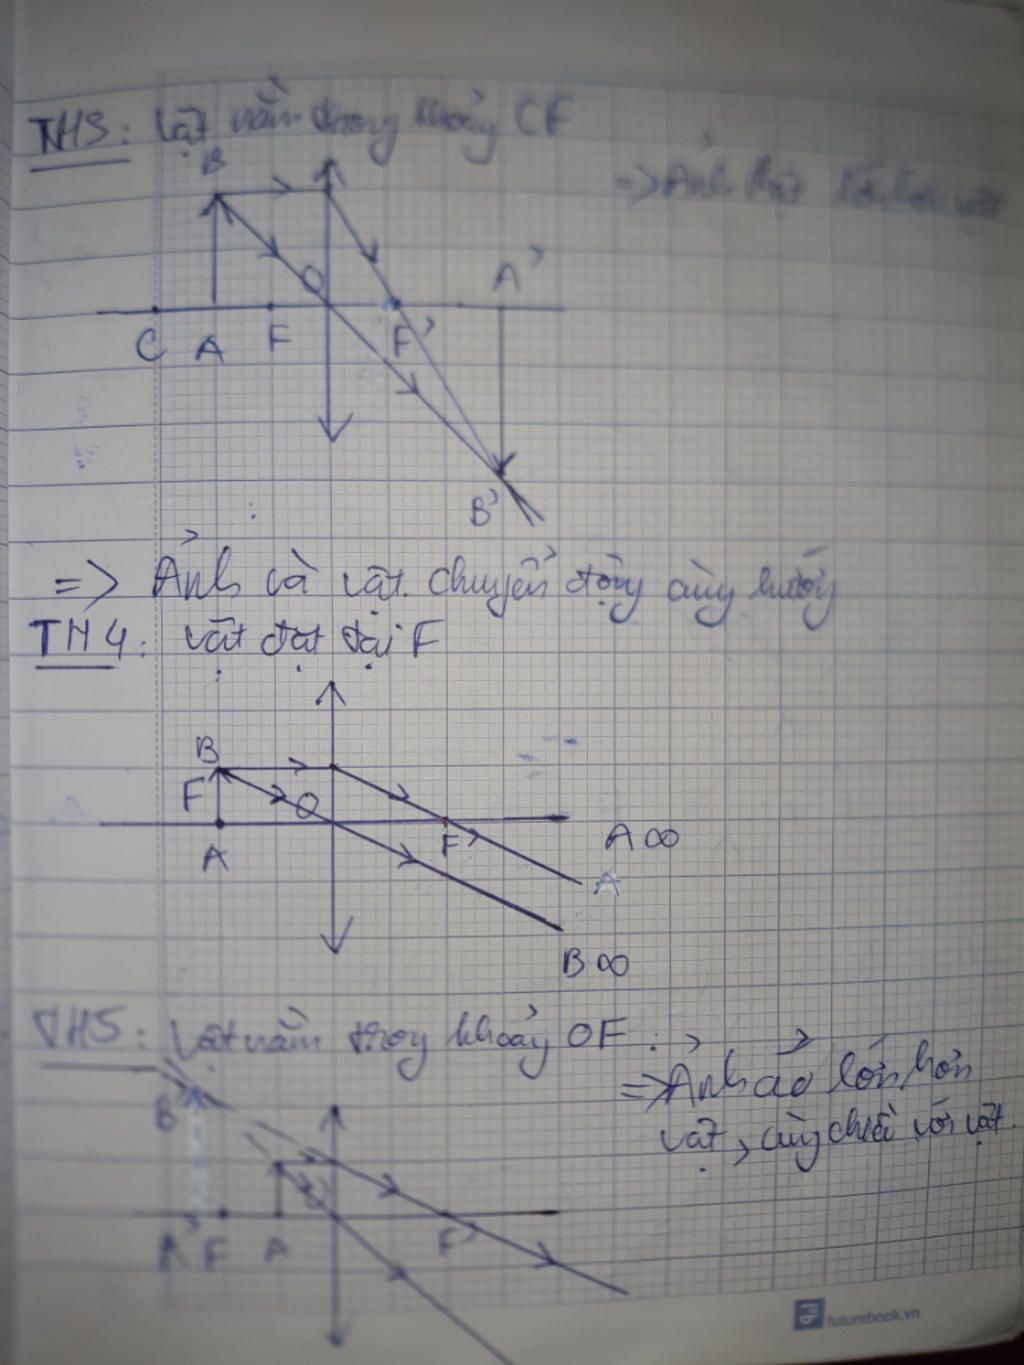 TH3: Vật nằm trong khoảng CF
=> Ảnh thật lớn hơn vật
B
O
A'
C A F F'
B'
=> Ảnh và vật chuyển động cùng hướng
TH4: Vật đặt tại F
B
F O
F'
A
A∞
A
B∞
TH5: Vật nằm trong khoảng OF:
=> Ảnh ảo lớn hơn
vật, cùng chiều với vật.
B'
A' F A F'
futurebook.vn